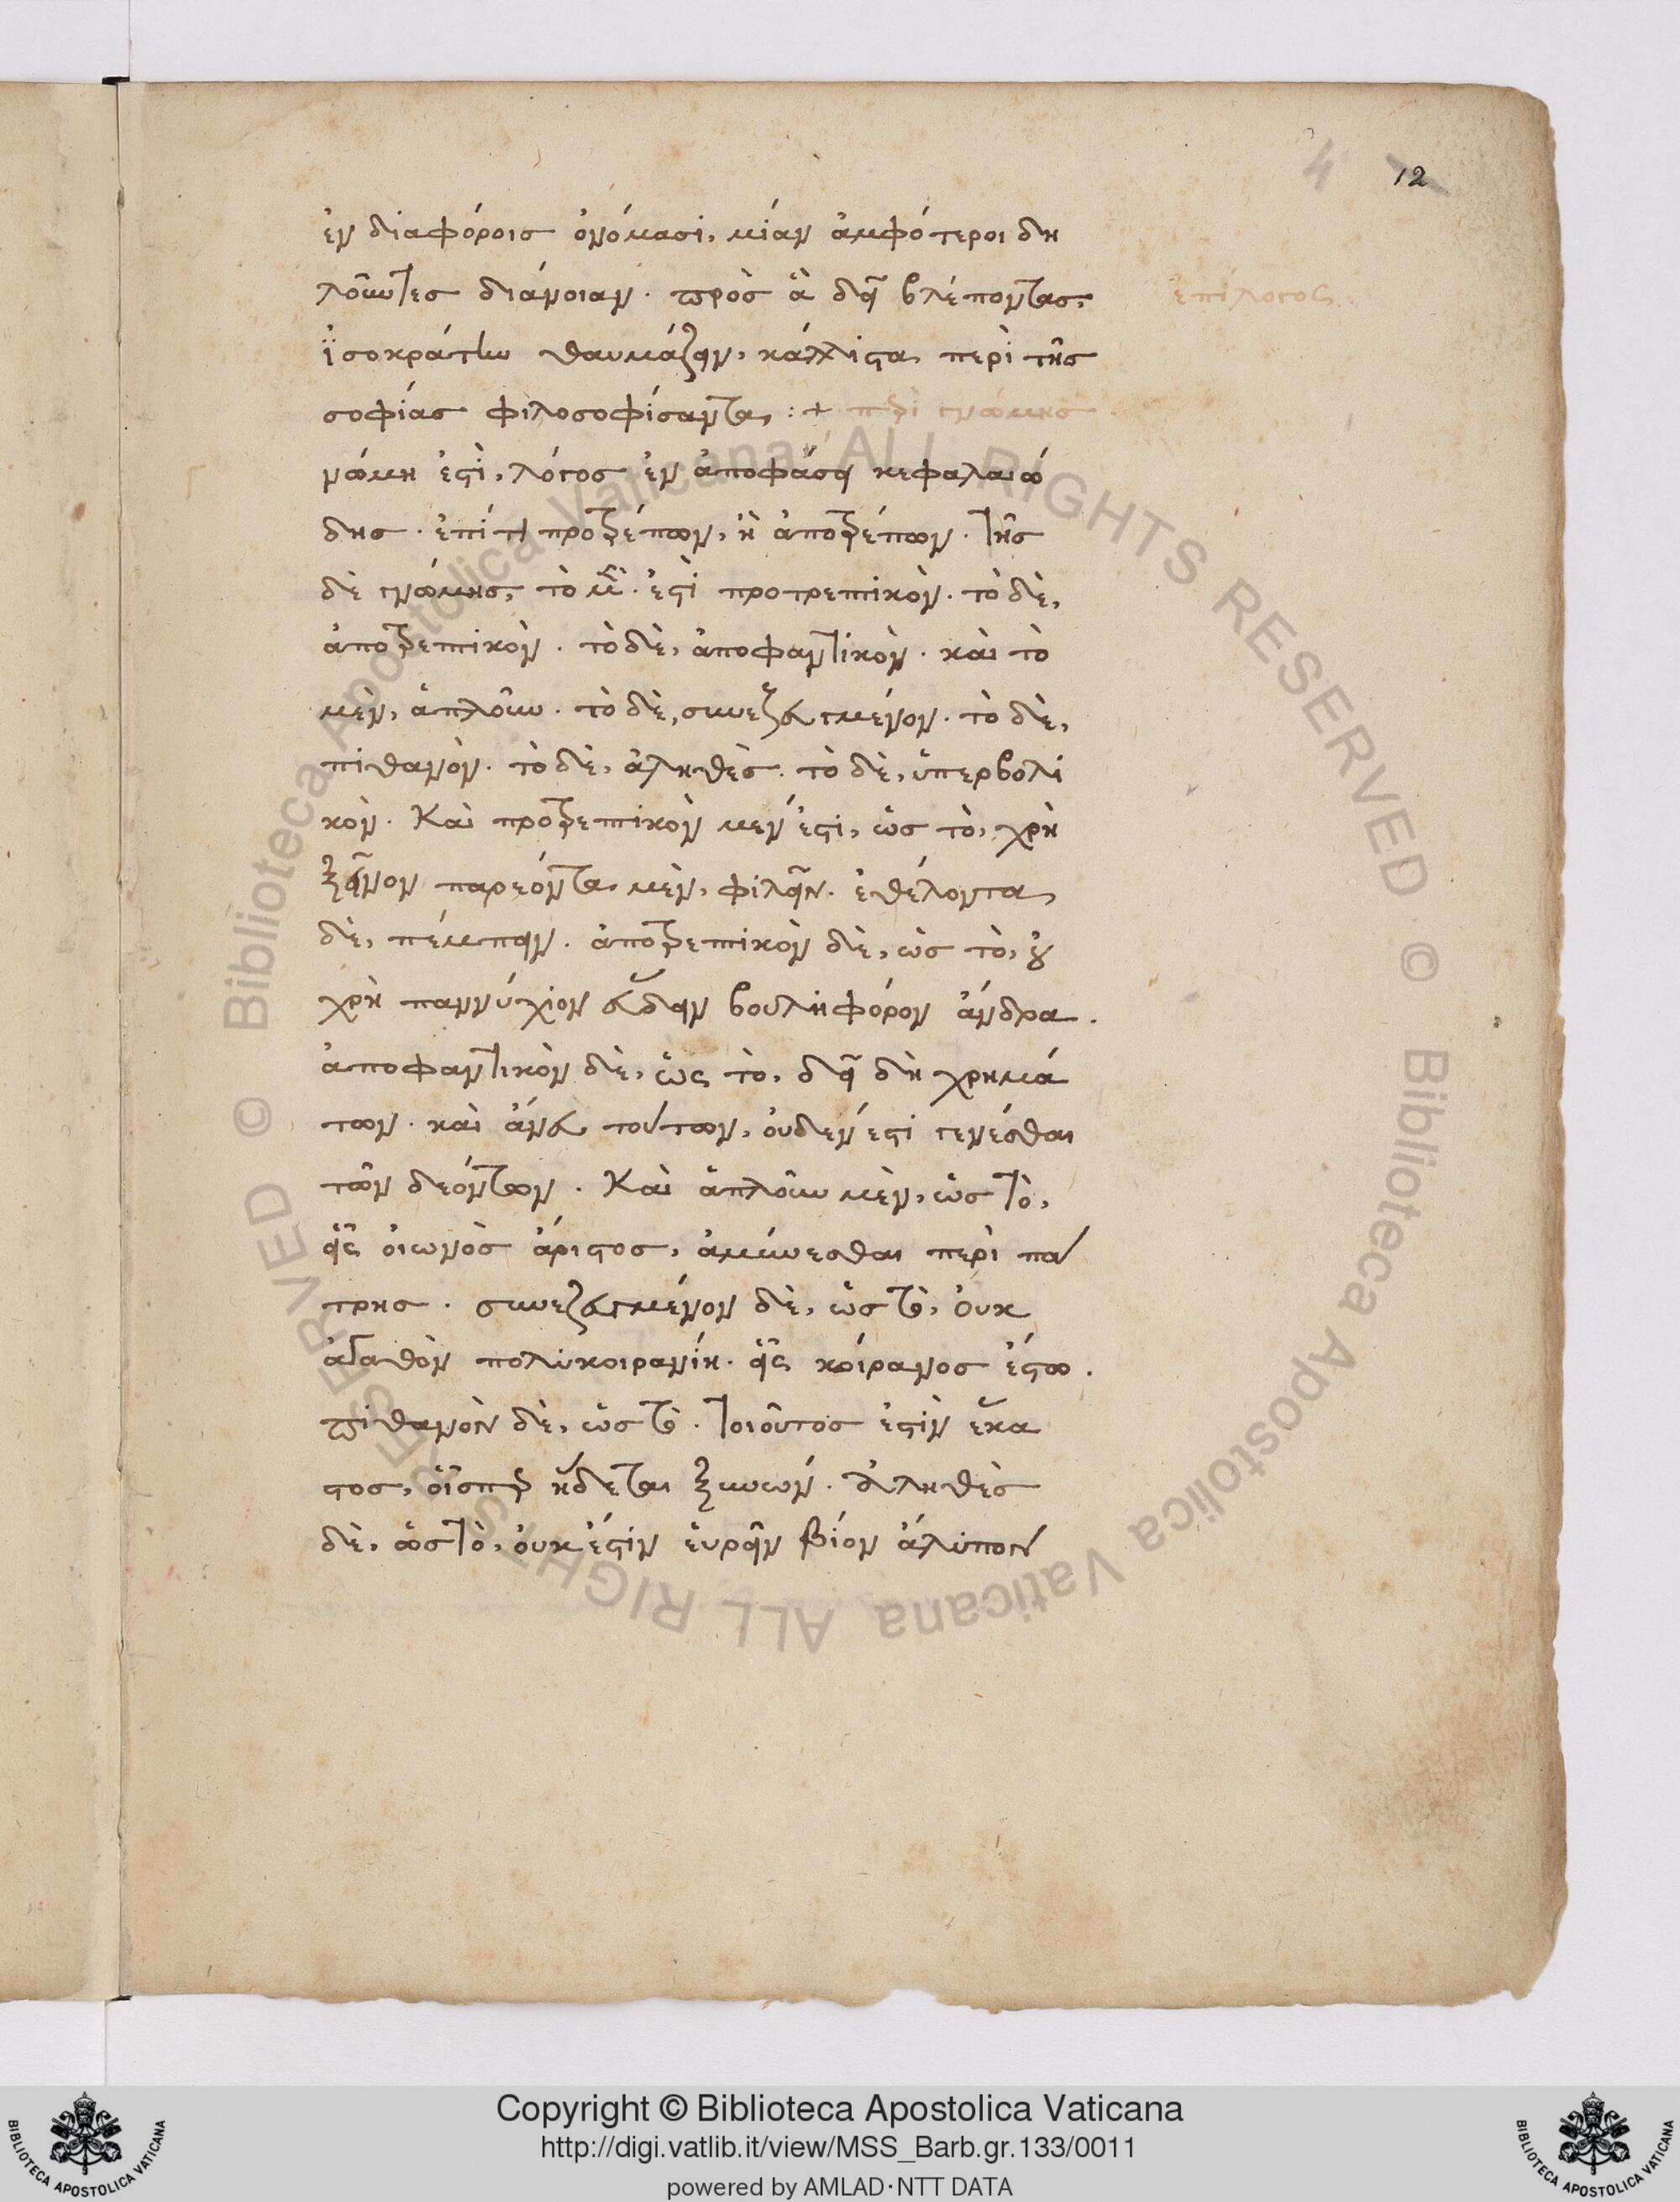 12
ἐν διαφόροις ὀνόμασι, μίαν ἀμφότεροι δη
λοῦντες διάνοιαν. πρὸς ἃ δεῖ βλέποντας,
ἐπίλογος
ἰσοκράτην θαυμάζειν, κάλλιστα περὶ τῆς
σοφίας φιλοσοφίσαντα :+ περὶ γνώμης
νώμη ἐστὶ, λόγος ἐν ἀποφάσει κεφαλαιώ
δης. ἐπί τι προτρέπων, ἢ ἀποτρέπων. τῆς
δὲ γνώμης, τὸ μέν ἐστὶ προτρεπτικὸν. τὸ δὲ,
ἀποτρεπτικὸν. τὸ δὲ, ἀποφαντικὸν. καὶ τὸ
μὲν, ἁπλοῦν. τὸ δὲ, συνεζευγμένον. τὸ δὲ,
πιθανὸν. τὸ δὲ, ἀληθὲς. τὸ δὲ, ὑπερβολι
κὸν. Καὶ προτρεπτικὸν μέν ἐστι, ὡς τὸ, χρὴ
ξεῖνον παρεόντα μὲν, φιλεῖν. ἐθέλοντα
δὲ, πέμπειν. ἀποτρεπτικὸν δὲ, ὡς τὸ, οὐ
χρὴ παννύχιον εὕδειν βουληφόρον ἄνδρα.
ἀποφαντικὸν δὲ, ὡς τὸ, δεῖ δὴ χρημά
των. καὶ ἄνευ τούτων, οὐδέν ἐστι γενέσθαι
τῶν δεόντων. Καὶ ἁπλοῦν μὲν, ὡς τὸ,
εἷς οἰωνὸς ἄριστος, ἀμύνεσθαι περὶ πά
τρης. συνεζευγμένον δὲ, ὡς τὸ, ὀυκ
ἀγαθὸν πολυκοιρανίη. εἷς κοίρανος ἔστω.
πιθανὸν δὲ, ὡς τὸ. τοιοῦτος ἐστὶν ἕκα
στος, οἷσπερ ἥδεται ξυνών. ἀληθὲς
δὲ, ὡς τὸ, ὀυκ ἔστιν ἑυρεῖν βίον ἄλυπον
Copyright © Biblioteca Apostolica Vaticana
http://digi.vatlib.it/view/MSS_Barb.gr.133/0011
powered by AMLAD·NTT DATA
BIBLIOTECA APOSTOLICA VATICANA
BIBLIOTECA APOSTOLICA VATICANA
© Biblioteca Apostolica Vaticana ALL RIGHTS RESERVED © Biblioteca Apostolica Vaticana ALL RIGHTS RESERVED